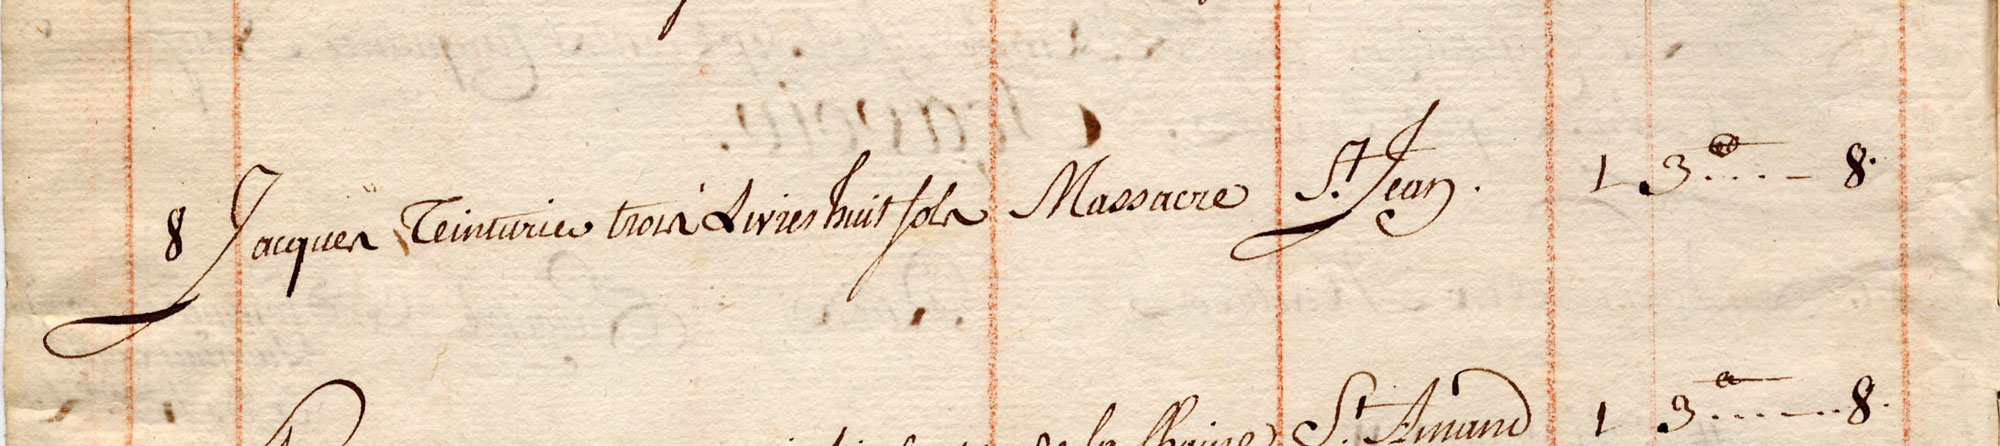 8 Jacques Teinturier trois Livres huit sols Massacre St. Jean. 1 3 ..... 8.
de la Chaine St. Amand 1 3 ....... 8.